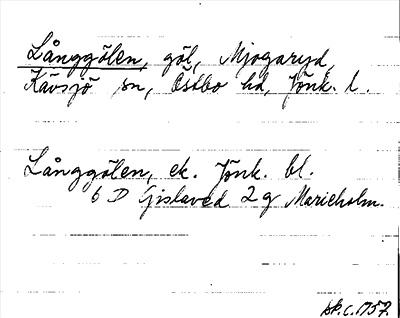 Långgölen, göl, Mjogaryd,
Kävsjö sn, Östbo hd, Jönk. l.
Långgölen, ek. Jönk. bl.
6 D Gislaved 2 g Marieholm.
bk.c.1757.